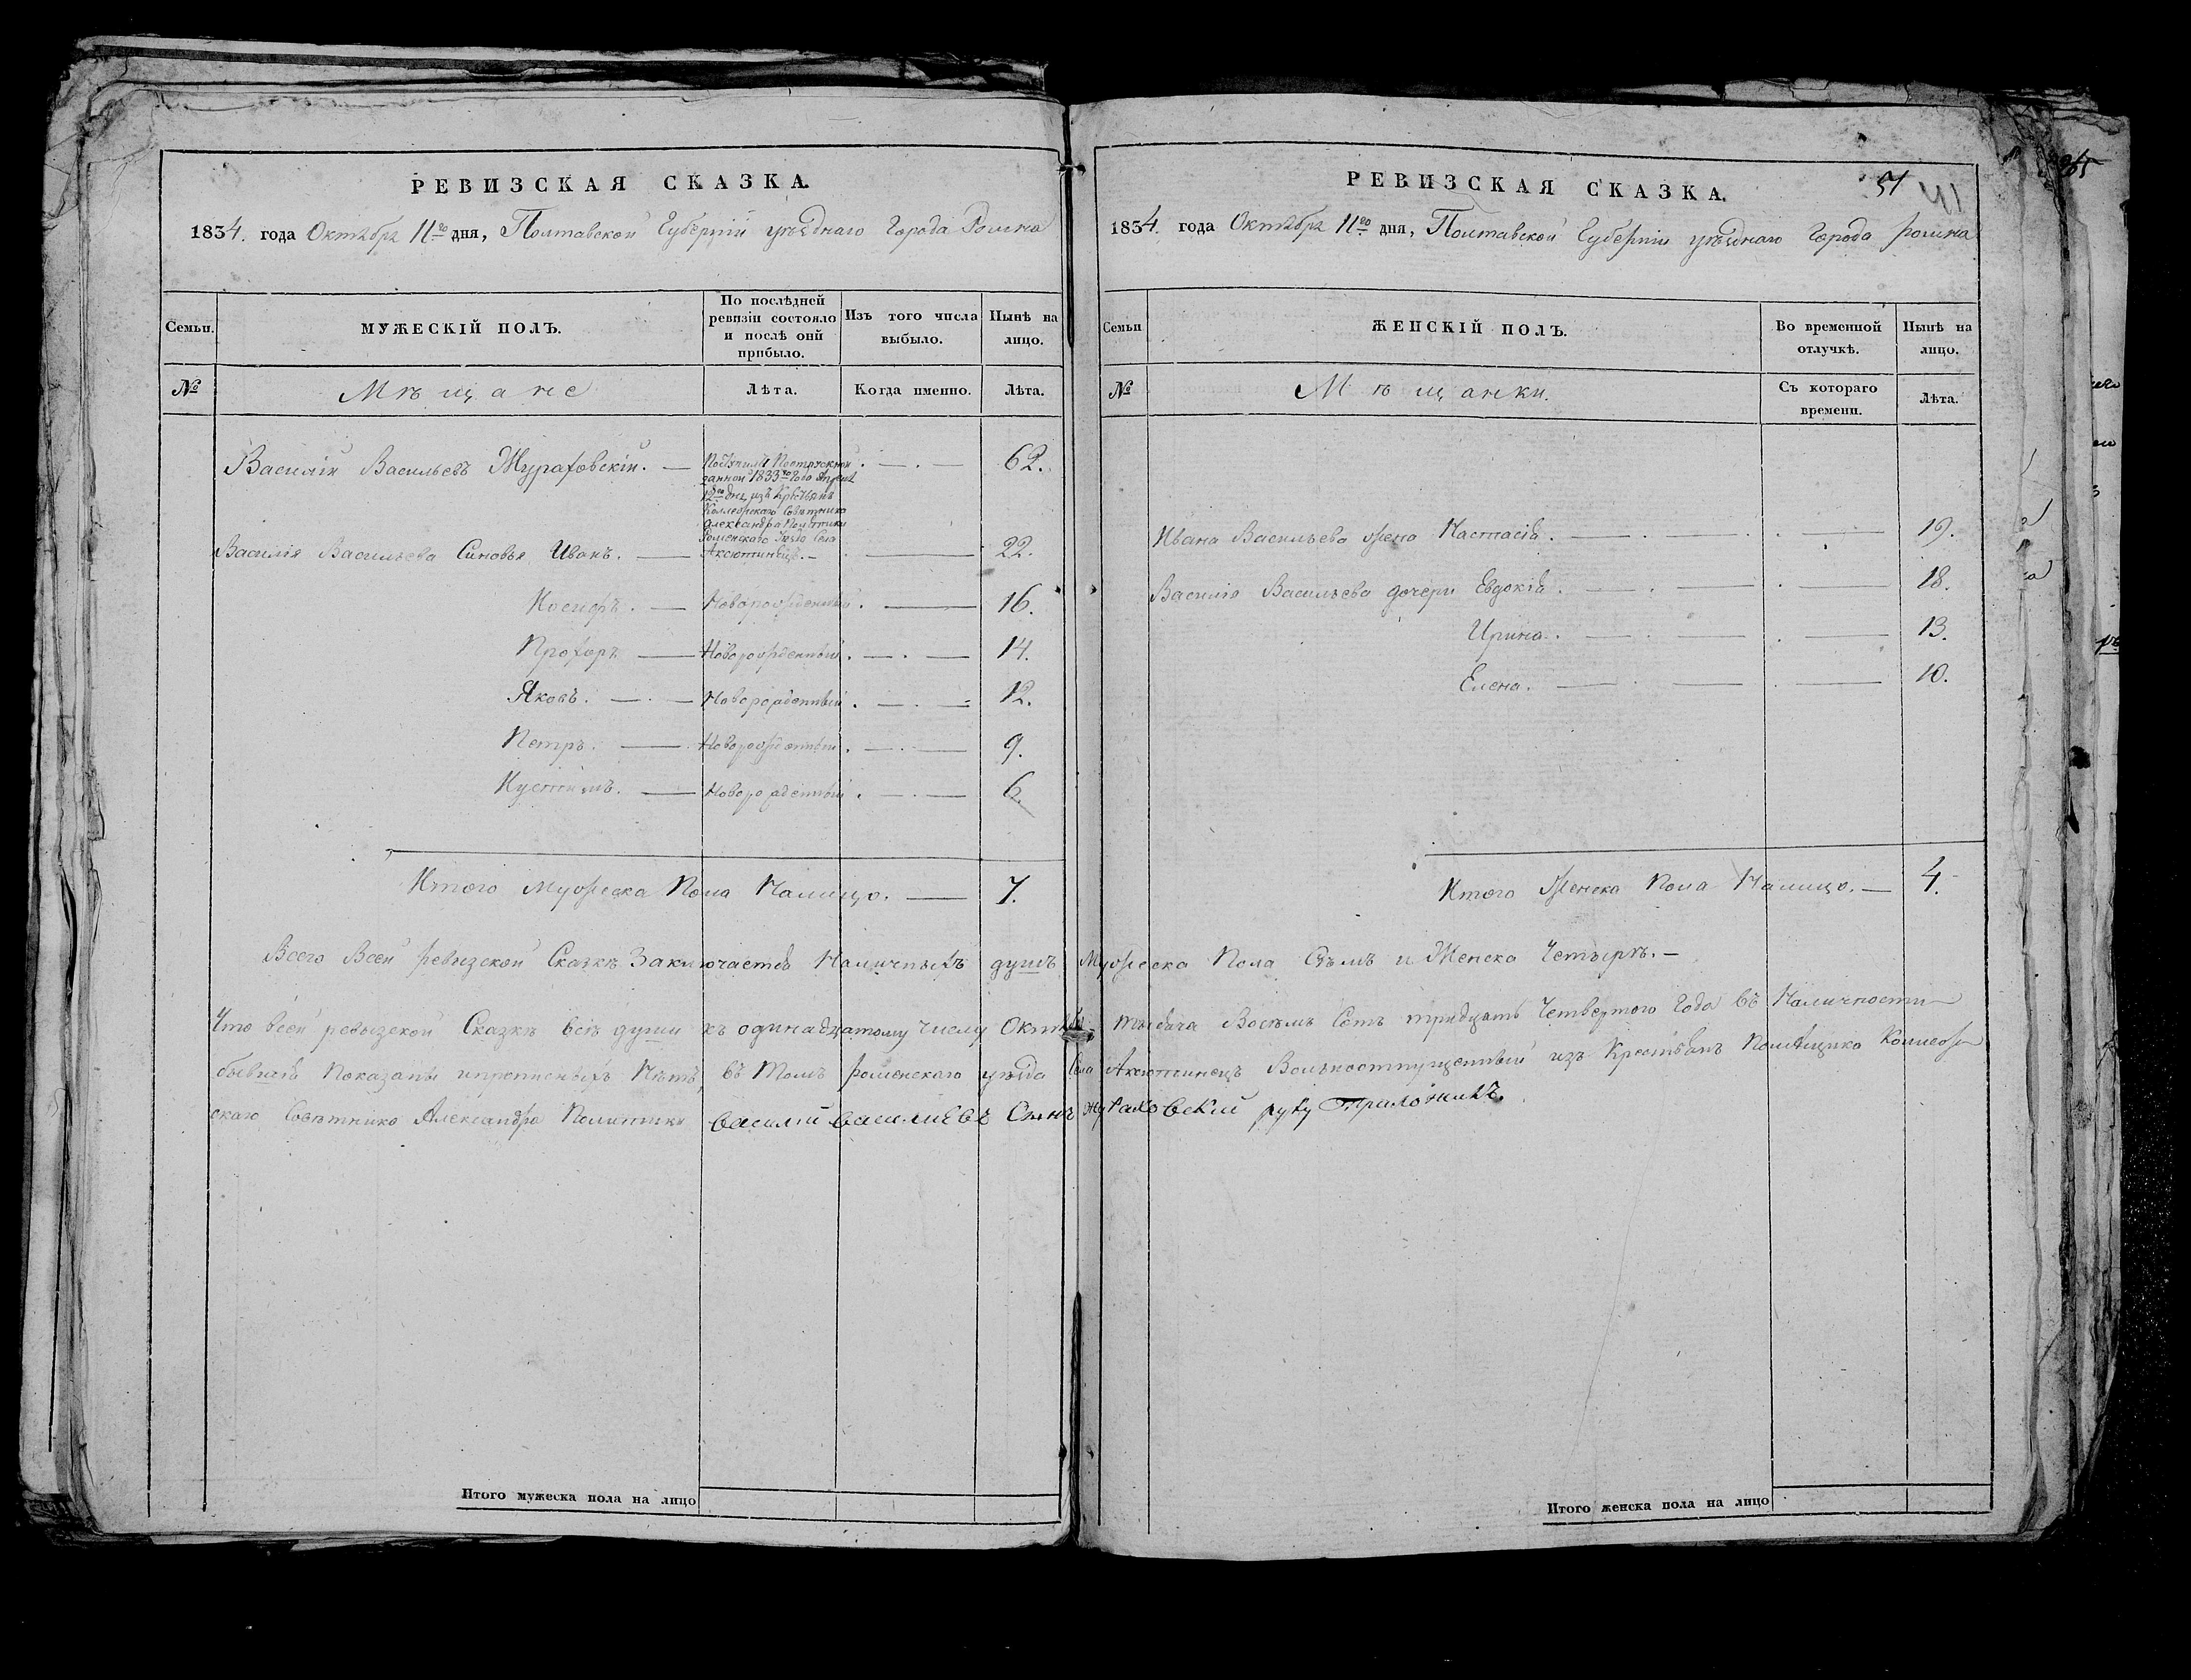 РЕВИЗСКАЯ СКАЗКА.
1834. года Октября 11го дня, Полтавской Губерніи уѣзднаго Города Ромна
Семьи.
МУЖЕСКІЙ ПОЛЪ.
По послѣдней ревизіи состояло и послѣ оной прибыло.
Изъ того числа выбыло.
Нынѣ на лицо.
№
Мѣщане
Лѣта.
Когда именно.
Лѣта.
Василій Васильевъ Жураховскій. —
62.
данной 1833го Года
12го дня изъ
Коллежскаго Совѣтника
Александра Полѣтики
Роменскаго уѣзда Села
Василія Васильева Сыновья Иванъ. — Аксютинецъ. — 22.
Иосифъ. — Новорожденный. — 16.
Прохоръ — Новорожденный. — 14.
Яковъ. — Новорожденный. — 12.
Петръ. — Новорожденный. — 9.
Новорожденный. — 6.
Итого Мужеска Пола Налицо. — 7.
Итого мужеска пола на лицо
РЕВИЗСКАЯ СКАЗКА.
51
1834. года Октября 11го дня, Полтавской Губерніи уѣзднаго Города Ромна
Семьи
ЖЕНСКІЙ ПОЛЪ.
Во временной отлучкѣ.
Нынѣ на лицо.
№
Мѣщанки.
Съ котораго времени.
Лѣта.
Ивана Васильева жена Настасія. — 19.
Василія Васильева дочери Евдокія. — 18.
Ирина. — 13.
Елена. — 10.
Итого Женска Пола Налицо. — 4.
Всего Всей ревизской Сказкѣ Заключается Наличныхъ душъ Мужеска Пола Седмъ и Женска Четыре. —
Что всей ревизской Сказкѣ всѣ души къ одинадцатому числу Октября тысяча Восемъ Сотъ тридцать Четвертого Года въ Наличности
бывшія Показаны Нѣтъ, въ Томъ роменскаго уѣзда Села Аксютинецъ Вольноотпущенный изъ Крестьянъ Помѣщика Коллеж
скаго Совѣтника Александра Политики василий василиевъ Синъ жураховский руку Приложилъ.
Итого женска пола на лицо